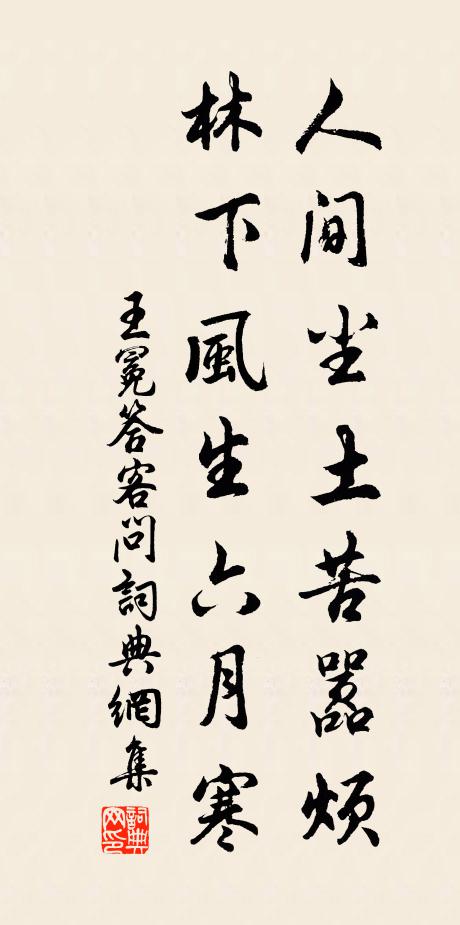 人间尘土苦嚣烦
林下風生六月寒
王冕答客问詞典網集
詞典網印